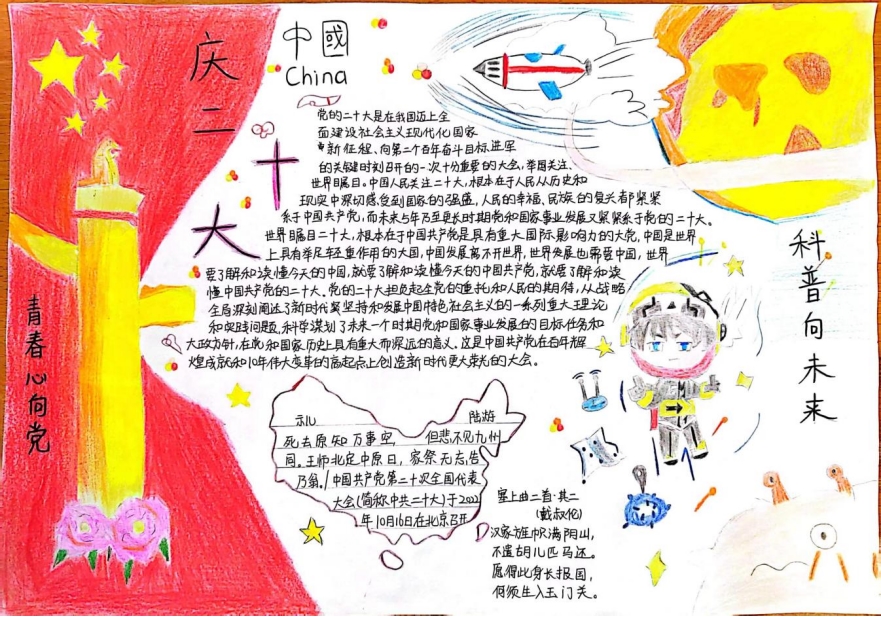 庆二十大
中國
China
党的二十大是在我国迈上全
面建设社会主义现代化国家
新征程、向第二个百年奋斗目标进军
的关键时刻召开的一次十分重要的大会,举国关注、
世界瞩目。中国人民关注二十大,根本在于人民从历史和
现实中深切感受到国家的强盛,人民的幸福、民族的复兴都紧紧
系于中国共产党,而未来5年乃至更长时期党和国家事业发展又紧紧系于党的二十大。
世界瞩目二十大,根本在于中国共产党是具有重大国际影响力的大党,中国是世界
上具有举足轻重作用的大国,中国发展离不开世界,世界发展也需要中国,世界
要了解和读懂今天的中国,就要了解和读懂今天的中国共产党,就要了解和读
懂中国共产党的二十大。党的二十大担负起全党的重托和人民的期待,从战略
全局深刻阐述了新时代坚持和发展中国特色社会主义的一系列重大理论
和实践问题,科学谋划了未来一个时期党和国家事业发展的目标任务和
大政方针,在党和国家历史上具有重大而深远的意义。这是中国共产党在百年辉
煌成就和10年伟大变革的高起点上创造新时代更大荣光的大会。
青春心向党
科普向未来
示儿 陆游
死去原知万事空, 但悲不见九州
同。王师北定中原日,家祭无忘告
乃翁。/中国共产党第二十次全国代表
大会(简称中共二十大)于2022
年10月16日在北京召开
塞上曲二首·其二
(戴叔伦)
汉家旌帜满阴山,
不遣胡儿匹马还。
愿得此身长报国,
何须生入玉门关。